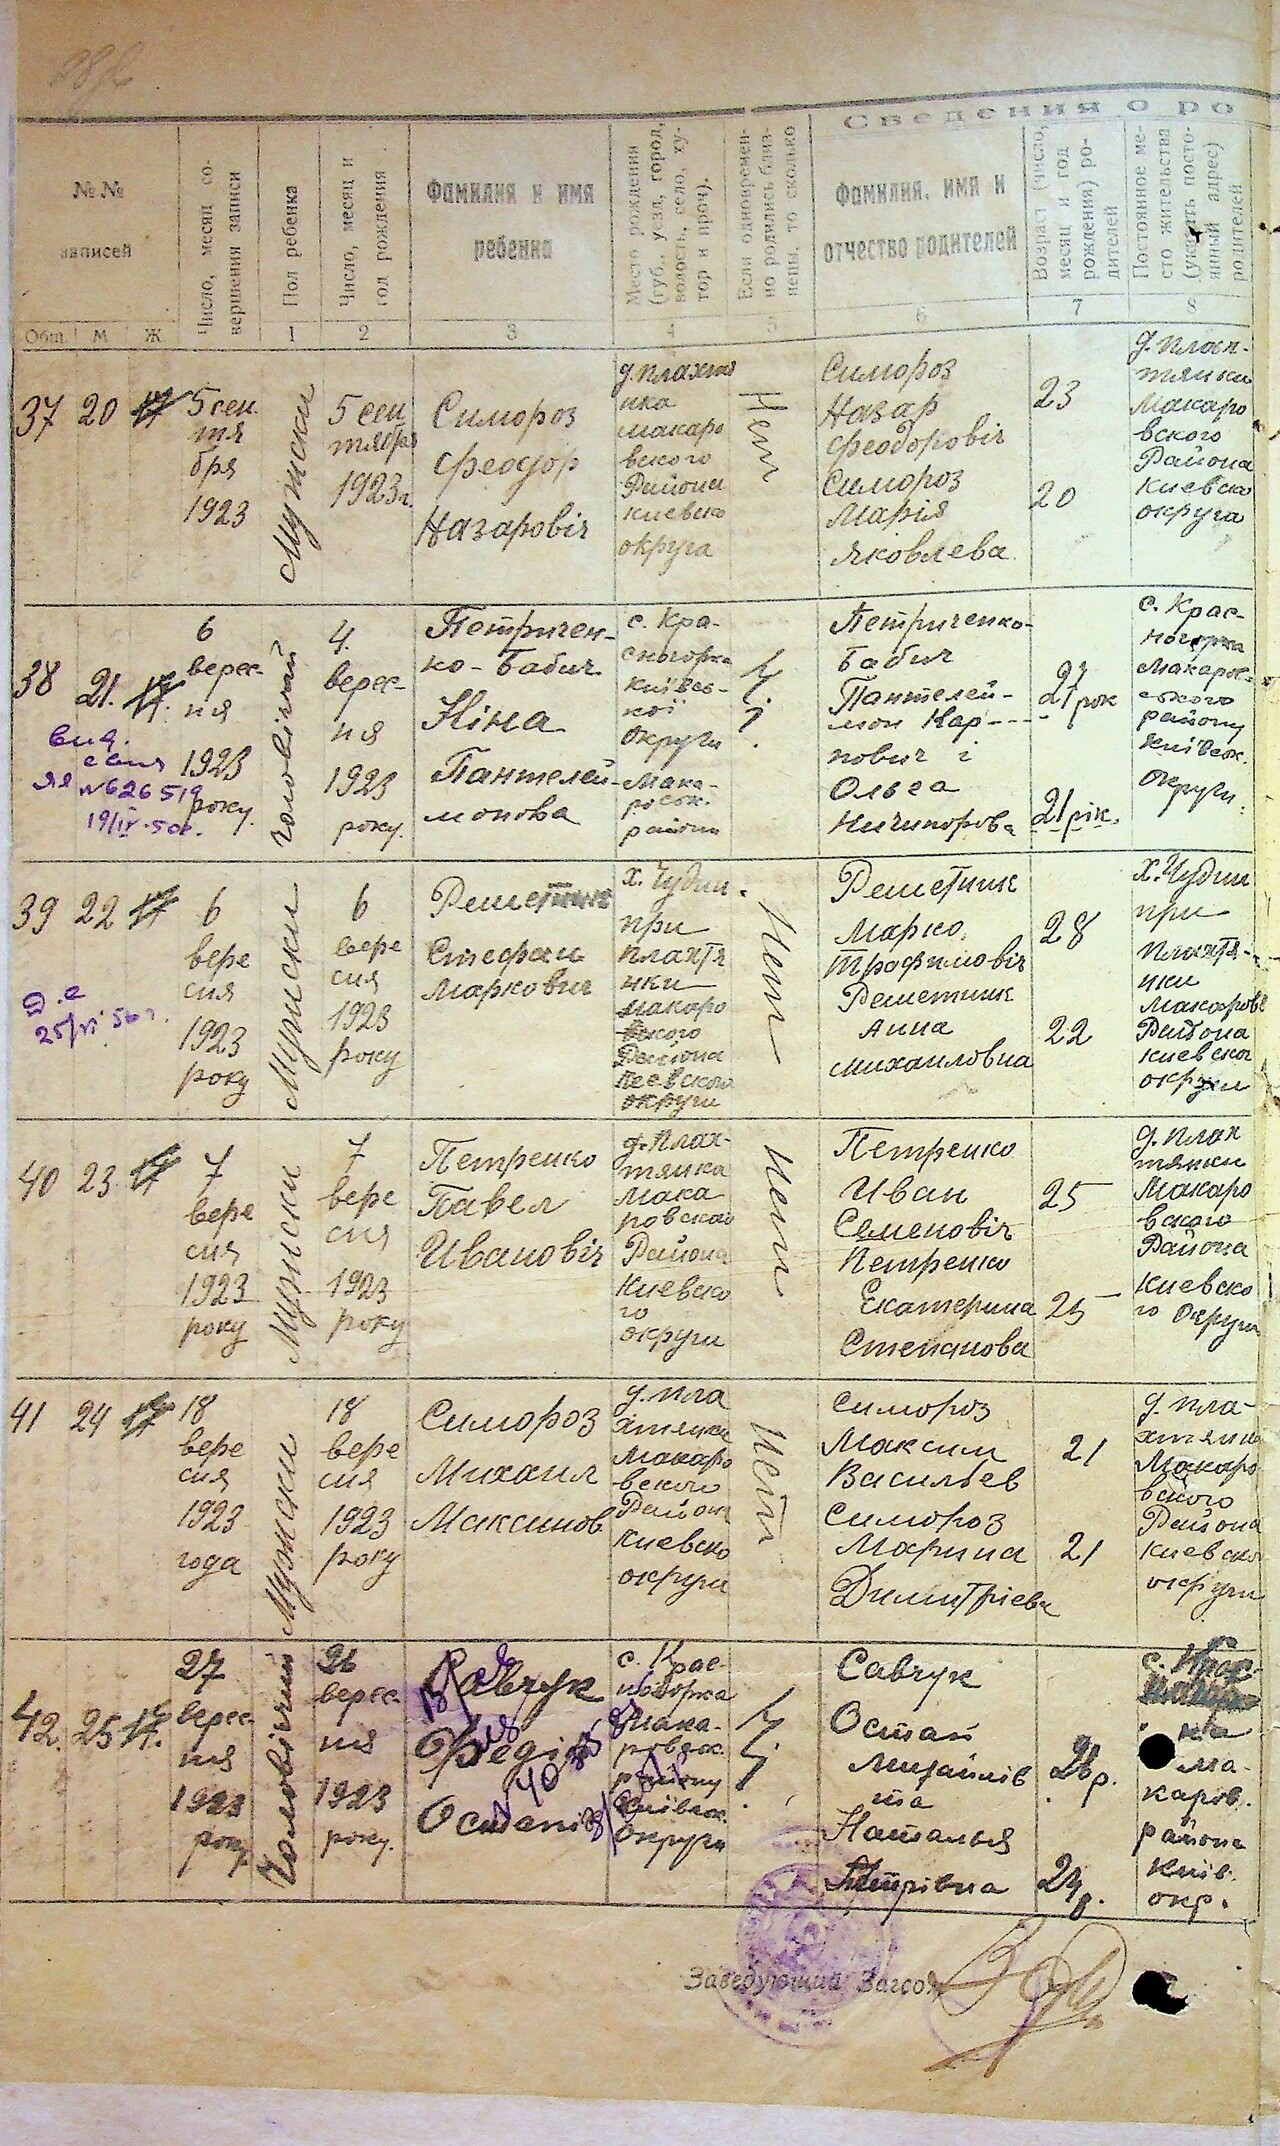 Сведения о ро
№№
записей
Общ. М Ж
Число, месяц со-
вершения записи
Пол ребенка
1
Число, месяц и
год рождения
2
Фамилия и имя
ребенка
3
Место рождения
(губ., уезд, город,
волость, село, ху-
тор и проч).
4
Если одновремен-
но родились близ-
нецы, то сколько
5
Фамилия, имя и
отчество родителей
6
Возраст (число,
месяц и год
рождения) ро-
дителей
7
Постоянное ме-
сто жительства
(указать посто-
янный адрес)
родителей
8
37 20
5 сен
тя
бря
1923
Мужски
5 сен
тября
1923 г.
Симороз
Феодор
Назаровіч
д. Плахтя
нка
Макаро
вского
Района
Киевско
округа
Нет
Симороз
Назар
Феодоровіч
Симороз
Марія
Яковлева
23
20
д. Плах-
тянки
Макаро
вского
Района
Киевско
округа
38 21.
6
верес-
ня
1923
року.
чоловічий
4.
верес-
ня
1923
року.
Петричен-
ко-Бабич
Ніна
Пантелей-
монова
с. Кра-
сногорка
Київсь-
кої
округи
Мака-
ровськ.
району
Петриченко-
Бабич
Пантелей-
мон Кар-
пович і
Ольга
Ничипорова
27 рок
21 рік.
с. Крас-
ногорка
Макарос-
ського
району
Київськ.
округи.
вид.
ЯЯ №626519
19/IV-50г.
39 22
6
вере
сня
1923
року
Мужски
6
вере
сня
1923
року
Решетник
Стефан
Маркович
х. Чудин
при
Плахтя
нки
Макаро
вского
Района
Киевского
округи
Нет
Решетник
Марко
Трофимовіч
Решетник
Анна
Михаиловна
28
22
х. Чудин
при
Плахтя-
нки
Макаров
Района
Киевско
округи
25/VI 56 г.
40 23
7
вере
сня
1923
року
Мужски
7
вере
сня
1923
року
Петренко
Павел
Ивановіч
д. Плах-
тянка
Мака
ровского
Района
Киевско
го
округи
Нет
Петренко
Иван
Семеновіч
Петренко
Екатерина
Степанова
25
25
д. Плах
тянки
Макаро
вского
Района
Киевско
го округи
41 24
18
вере
сня
1923
года
Мужски
18
вере
сня
1923
року
Симороз
Михаил
Максимов
д. Пла
хтянка
Макаро
вского
Района
Киевско
округи
Нет
Симороз
Максим
Васильев
Симороз
Марина
Димитріева
21
21
д. Пла-
хтянки
Макаро
вского
Района
Киевско
округи
42. 25
27
верес-
ня
1923
року
Чоловічий
26
верес-
ня
1923
року.
Савчук
Федір
с. Крас-
ногорка
Мака-
ровськ.
району
Київськ.
округи
Савчук
Остап
Михайлів
та
Наталья
Петрівна
26 р.
24 р.
с. Крас-
ка
Ма-
каров.
района
Київ.
окр.
Заведующий Загсом